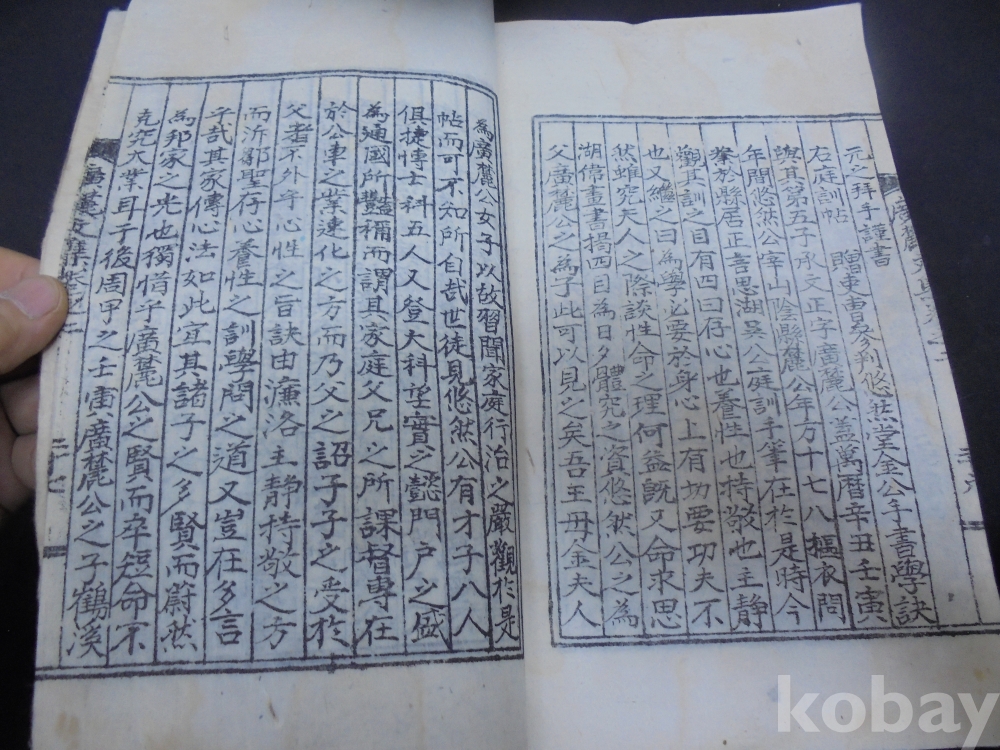 元之拜手謹書
右庭訓帖 贈吏曹參判悠然堂金公手書學訣
與其第五子承文正字廣麓公盖萬曆辛丑壬寅
年間悠然公宰山陰縣麓公年方十七八摳衣問
業於縣居正言思湖吳公庭訓手筆在於是時今
觀其訓之目有四曰存心也養性也持敬也主靜
也又繼之曰為學必要於身心上有功要功夫不
然雖究天人之際談性命之理何益既又命求思
湖偉畫書揭四目為日夕體究之資悠然公之為
父廣麓公之為子此可以見之矣吾王母金夫人
為廣麓公女子以故習聞家庭行治之嚴觀於是
帖而可不知所自哉世徒見悠然公有才子八人
俱捷愽士科五人又登大科望實之懿門户之盛
為通國所豔稱而謂其家庭父兄之所課督專在
於公車之業進化之方而乃父之詔子子之受於
父者不外乎心性之旨訣由濂洛主靜持敬之方
而泝鄒聖存心養性之訓學問之道又豈在多言
乎哉其家傳心法如此宜其諸子之多賢而蔚然
為邦家之光也獨惜乎廣麓公之賢而卒短命不
克究大業耳子後周甲之壬寅廣麓公之子鶴溪
廣麓文集卷之二
二十七
kobay